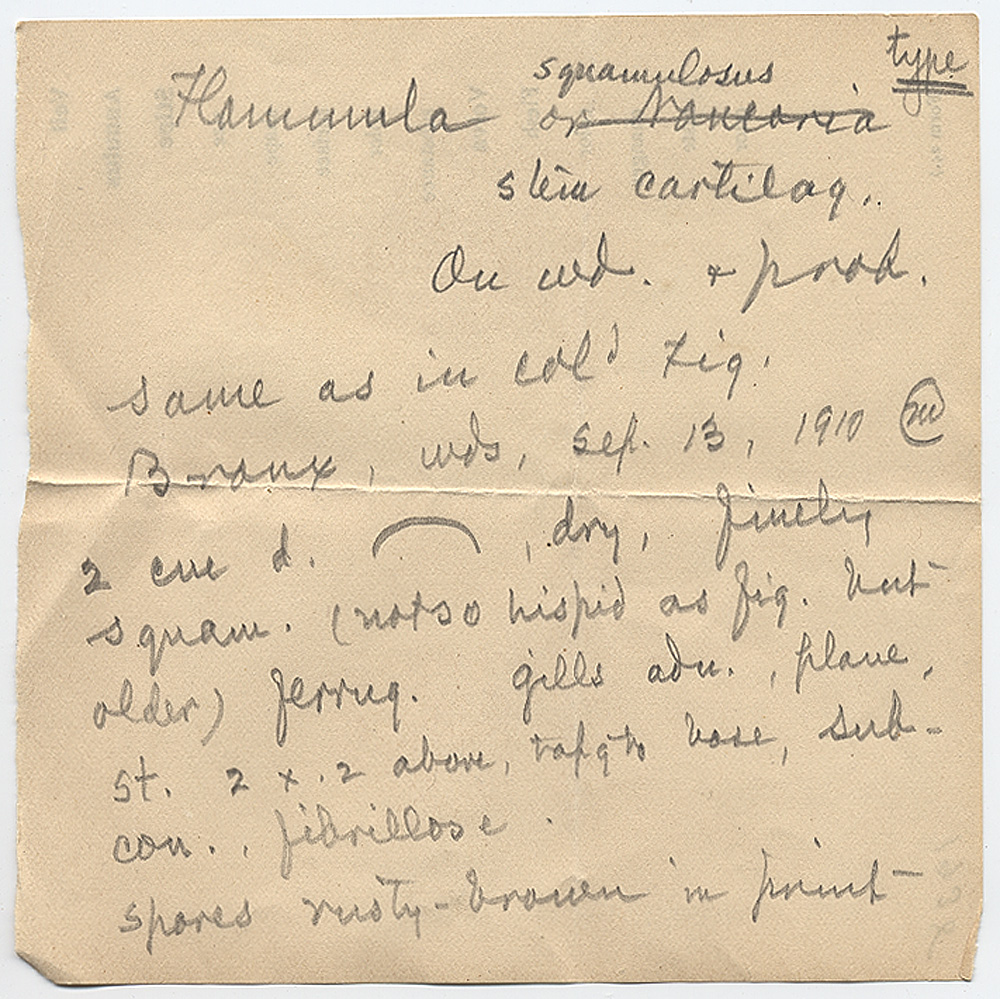 type
squamulosus
Flammula or Naucoria
stem cartilag..
On wd. + prod.
same as in col'd fig.
Bronx, wds, Sep. 13, 1910 M
2 cm d. , dry, finely
squam. (not so hispid as fig. but
older) ferrug. gills adn., plane,
st. 2 x .2 above, to base, sub-
con., fibrillose.
spores rusty-brown in print